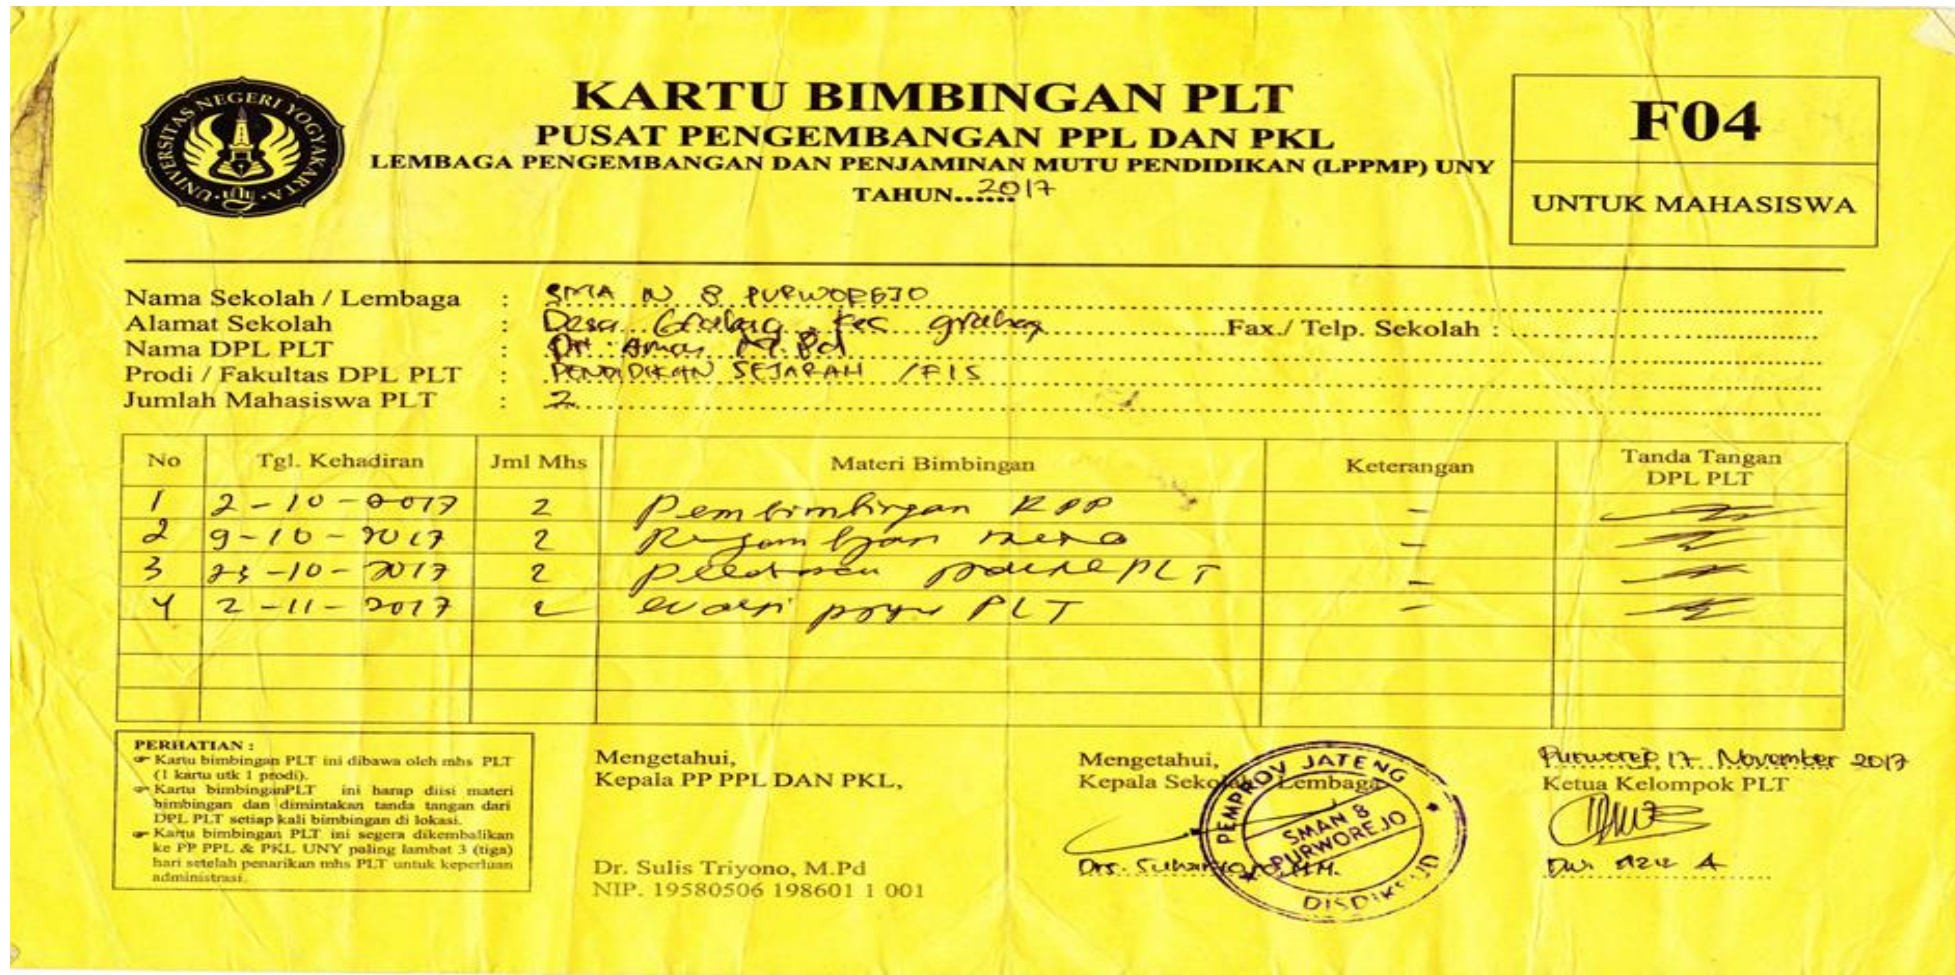 UNIVERSITAS NEGERI YOGYAKARTA
KARTU BIMBINGAN PLT
PUSAT PENGEMBANGAN PPL DAN PKL
LEMBAGA PENGEMBANGAN DAN PENJAMINAN MUTU PENDIDIKAN (LPPMP) UNY
TAHUN...... 2017
F04
UNTUK MAHASISWA
Nama Sekolah / Lembaga : SMA N 8 PURWOREJO
Alamat Sekolah : Desa Grabag Kec grabag Fax./ Telp. Sekolah :
Nama DPL PLT : M.Pd
Prodi / Fakultas DPL PLT : PENDIDIKAN SEJARAH / FIS
Jumlah Mahasiswa PLT : 2
No Tgl. Kehadiran Jml Mhs Materi Bimbingan Keterangan Tanda Tangan DPL PLT
1 2-10-2017 2 Pembimbingan RPP -
2 9-10-2017 2 -
3 23-10-2017 2 PLT -
4 2-11-2017 2 PLT -
PERHATIAN :
☞ Kartu bimbingan PLT ini dibawa oleh mhs PLT
(1 kartu utk 1 prodi).
☞ Kartu bimbinganPLT ini harap diisi materi
bimbingan dan dimintakan tanda tangan dari
DPL PLT setiap kali bimbingan di lokasi.
☞ Kartu bimbingan PLT ini segera dikembalikan
ke PP PPL & PKL UNY paling lambat 3 (tiga)
hari setelah penarikan mhs PLT untuk keperluan
administrasi.
Mengetahui,
Kepala PP PPL DAN PKL,
Dr. Sulis Triyono, M.Pd
NIP. 19580506 198601 1 001
Mengetahui,
Kepala Sekolah Lembaga
Drs. M.M.
PEMPROV JATENG
SMAN 8
PURWOREJO
DISDIKBUD
Purworejo, 17 November 2017
Ketua Kelompok PLT
Dwi Aziz A